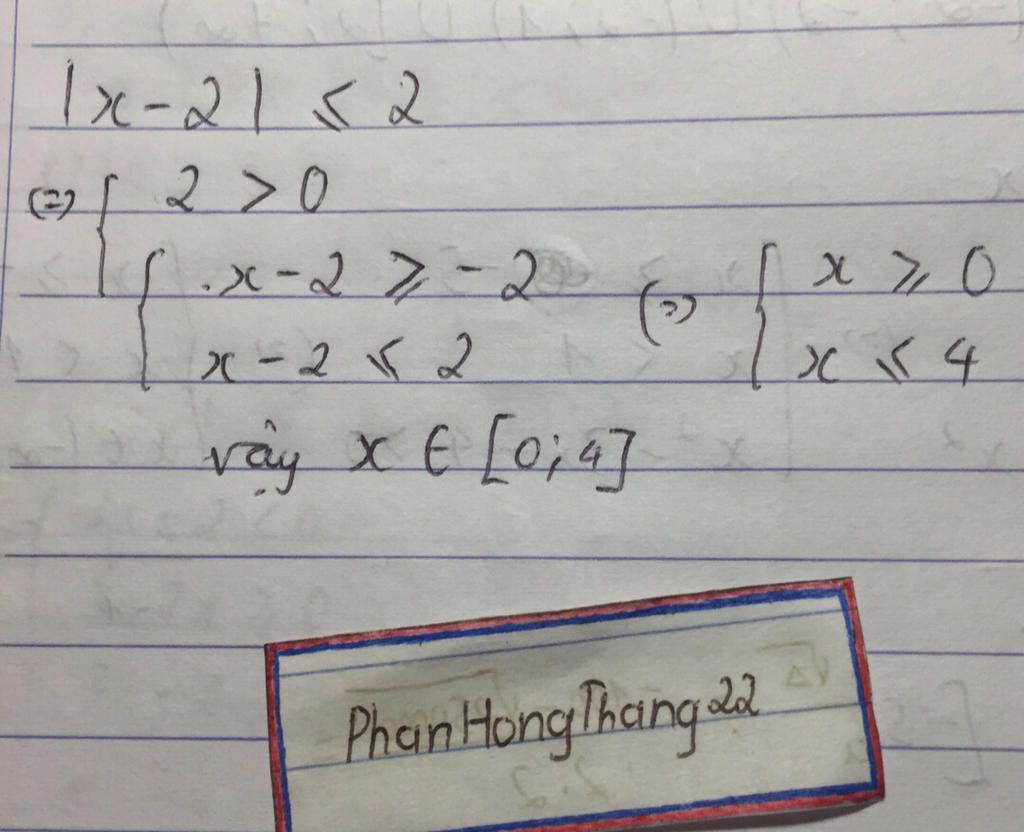 |x-2| ⩽ 2
(=) { 2 > 0
{ x-2 ⩾ -2 (=) { x ⩾ 0
x-2 ⩽ 2 x ⩽ 4
vậy x ∈ [0;4]
PhanHongThang22